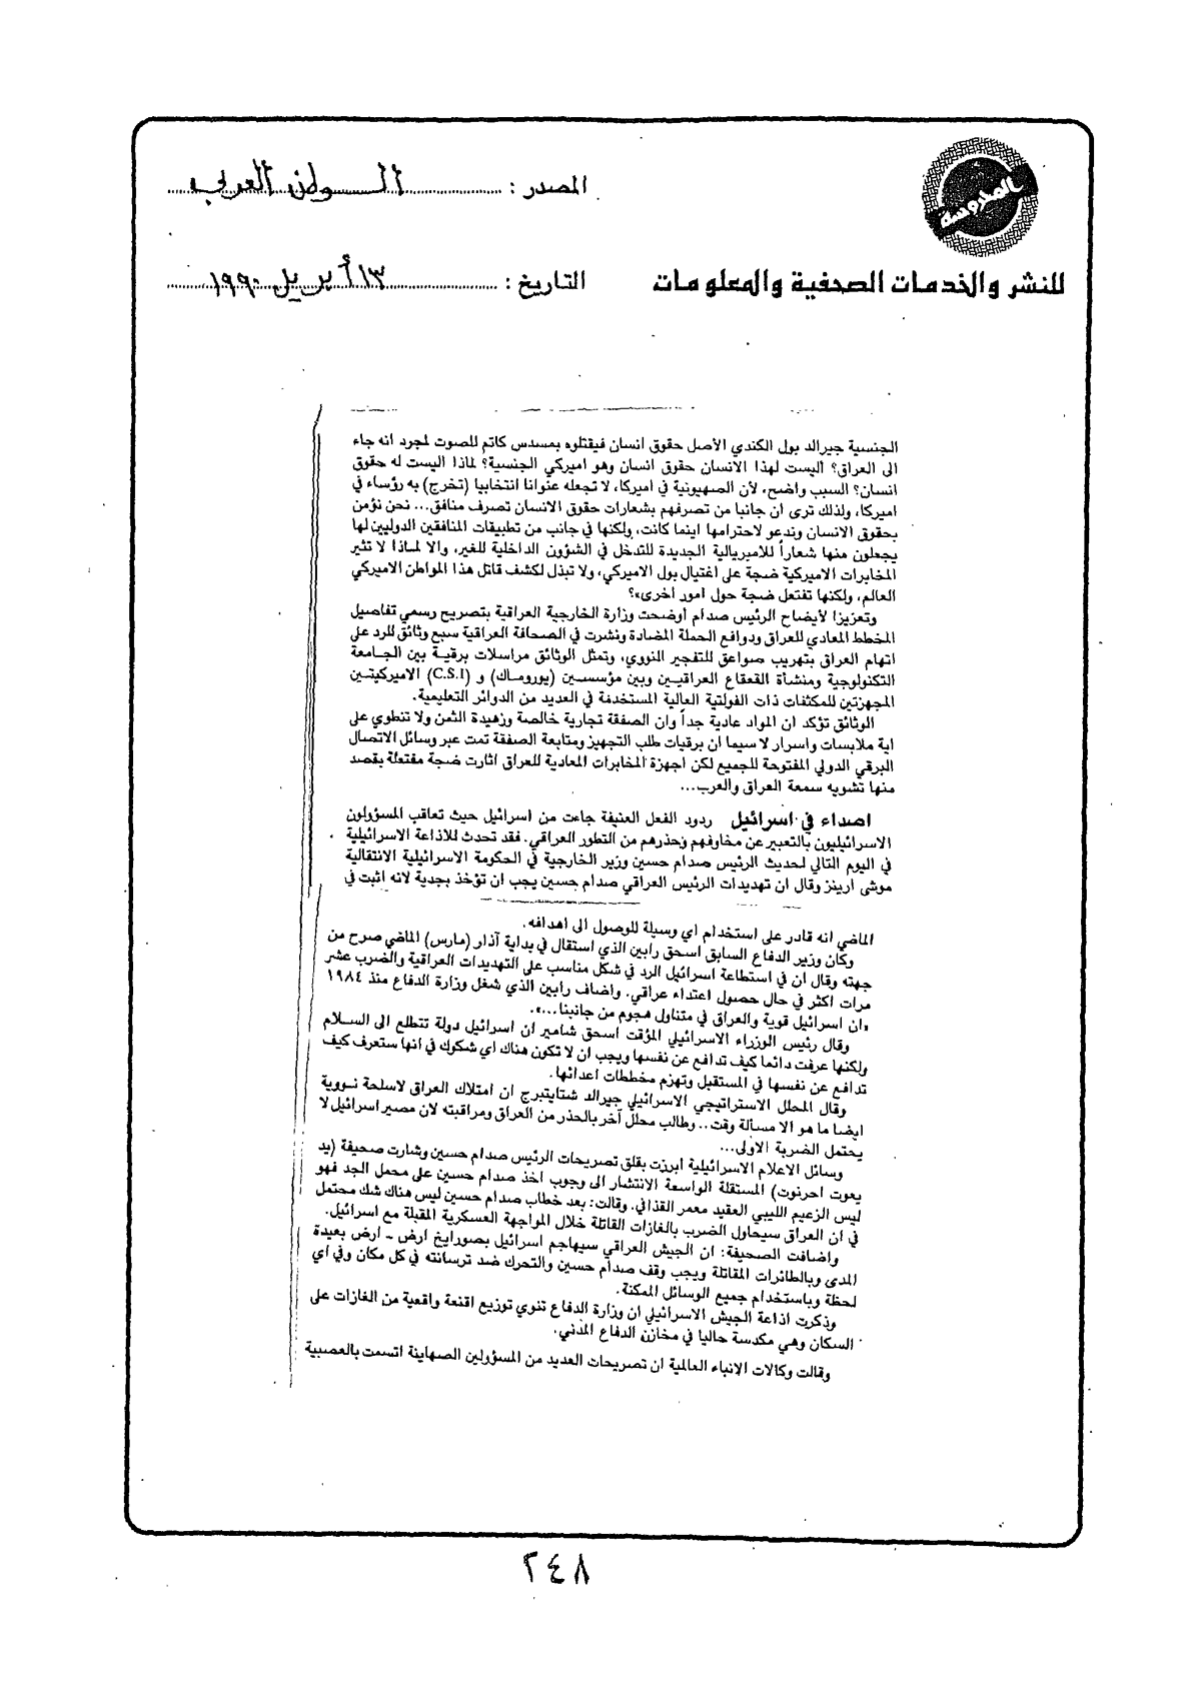 المحروسة
المصدر : الوطن العربي
للنشر والخدمات الصحفية والمعلومات
التاريخ : ١٣ أبريل ١٩٩٠
الجنسية جيرالد بول الكندي الأصل حقوق انسان فيقتلوه بمسدس كاتم للصوت لمجرد انه جاء
الى العراق؟ اليست لهذا الانسان حقوق انسان وهو اميركي الجنسية؟ لماذا اليست له حقوق
انسان؟ السبب واضح، لأن الصهيونية في اميركا، لا تجعله عنوانا انتخابيا (تخرج) به رؤساء في
اميركا، ولذلك ترى ان جانبا من تصرفهم بشعارات حقوق الانسان تصرف منافق... نحن نؤمن
بحقوق الانسان وندعو لاحترامها اينما كانت، ولكنها في جانب من تطبيقات المنافقين الدوليين لها
يجعلون منها شعاراً للامبريالية الجديدة للتدخل في الشؤون الداخلية للغير، والا لماذا لا تثير
المخابرات الاميركية ضجة على اغتيال بول الاميركي، ولا تبذل لكشف قاتل هذا المواطن الاميركي
العالم، ولكنها تفتعل ضجة حول امور اخرى»؟
وتعزيزا لأيضاح الرئيس صدام اوضحت وزارة الخارجية العراقية بتصريح رسمي تفاصيل
المخطط المعادي للعراق ودوافع الحملة المضادة ونشرت في الصحافة العراقية سبع وثائق للرد على
اتهام العراق بتهريب صواعق للتفجير النووي، وتمثل الوثائق مراسلات برقية بين الجامعة
التكنولوجية ومنشأة القعقاع العراقيين وبين مؤسستين (يوروماك) و (C.S.I) الاميركيتين
المجهزتين للمكثفات ذات الفولتية العالية المستخدمة في العديد من الدوائر التعليمية.
الوثائق تؤكد ان المواد عادية جداً وان الصفقة تجارية خالصة وزهيدة الثمن ولا تنطوي على
اية ملابسات واسرار لا سيما ان برقيات طلب التجهيز ومتابعة الصفقة تمت عبر وسائل الاتصال
البرقي الدولي المفتوحة للجميع لكن اجهزة المخابرات المعادية للعراق اثارت ضجة مفتعلة بقصد
منها تشويه سمعة العراق والعرب...
اصداء في اسرائيل ردود الفعل العنيفة جاءت من اسرائيل حيث تعاقب المسؤولون
الاسرائيليون بالتعبير عن مخاوفهم وحذرهم من التطور العراقي. فقد تحدث للاذاعة الاسرائيلية
في اليوم التالي لحديث الرئيس صدام حسين وزير الخارجية في الحكومة الاسرائيلية الانتقالية
موشى ارينز وقال ان تهديدات الرئيس العراقي صدام حسين يجب ان تؤخذ بجدية لانه اثبت في
الماضي انه قادر على استخدام اي وسيلة للوصول الى اهدافه.
وكان وزير الدفاع السابق اسحق رابين الذي استقال في بداية آذار (مارس) الماضي صرح من
جهته وقال ان في استطاعة اسرائيل الرد في شكل مناسب على التهديدات العراقية والضرب عشر
مرات اكثر في حال حصول اعتداء عراقي. واضاف رابين الذي شغل وزارة الدفاع منذ ١٩٨٤
«ان اسرائيل قوية والعراق في متناول هجوم من جانبنا...».
وقال رئيس الوزراء الاسرائيلي المؤقت اسحق شامير ان اسرائيل دولة تتطلع الى السلام
ولكنها عرفت دائما كيف تدافع عن نفسها ويجب ان لا تكون هناك اي شكوك في انها ستعرف كيف
تدافع عن نفسها في المستقبل وتهزم مخططات اعدائها.
وقال المحلل الاستراتيجي الاسرائيلي جيرالد شتاينبرج ان امتلاك العراق لاسلحة نووية
ايضا ما هو الا مسألة وقت.. وطالب محلل آخر بالحذر من العراق ومراقبته لان مصير اسرائيل لا
يحتمل الضربة الاولى...
وسائل الاعلام الاسرائيلية ابرزت بقلق تصريحات الرئيس صدام حسين وشارت صحيفة (يد
يعوت احرنوت) المستقلة الواسعة الانتشار الى وجوب اخذ صدام حسين على محمل الجد فهو
ليس الزعيم الليبي العقيد معمر القذافي. وقالت: بعد خطاب صدام حسين ليس هناك شك محتمل
في ان العراق سيحاول الضرب بالغازات القاتلة خلال المواجهة العسكرية المقبلة مع اسرائيل.
واضافت الصحيفة: ان الجيش العراقي سيهاجم اسرائيل بصورايخ ارض - ارض بعيدة
المدى وبالطائرات المقاتلة ويجب وقف صدام حسين والتحرك ضد ترسانته في كل مكان وفي اي
لحظة وباستخدام جميع الوسائل الممكنة.
وذكرت اذاعة الجيش الاسرائيلي ان وزارة الدفاع تنوي توزيع اقنعة واقعية من الغازات على
السكان وهي مكدسة حاليا في مخازن الدفاع المدني.
وقالت وكالات الانباء العالمية ان تصريحات العديد من المسؤولين الصهاينة اتسمت بالعصبية
٢٤٨